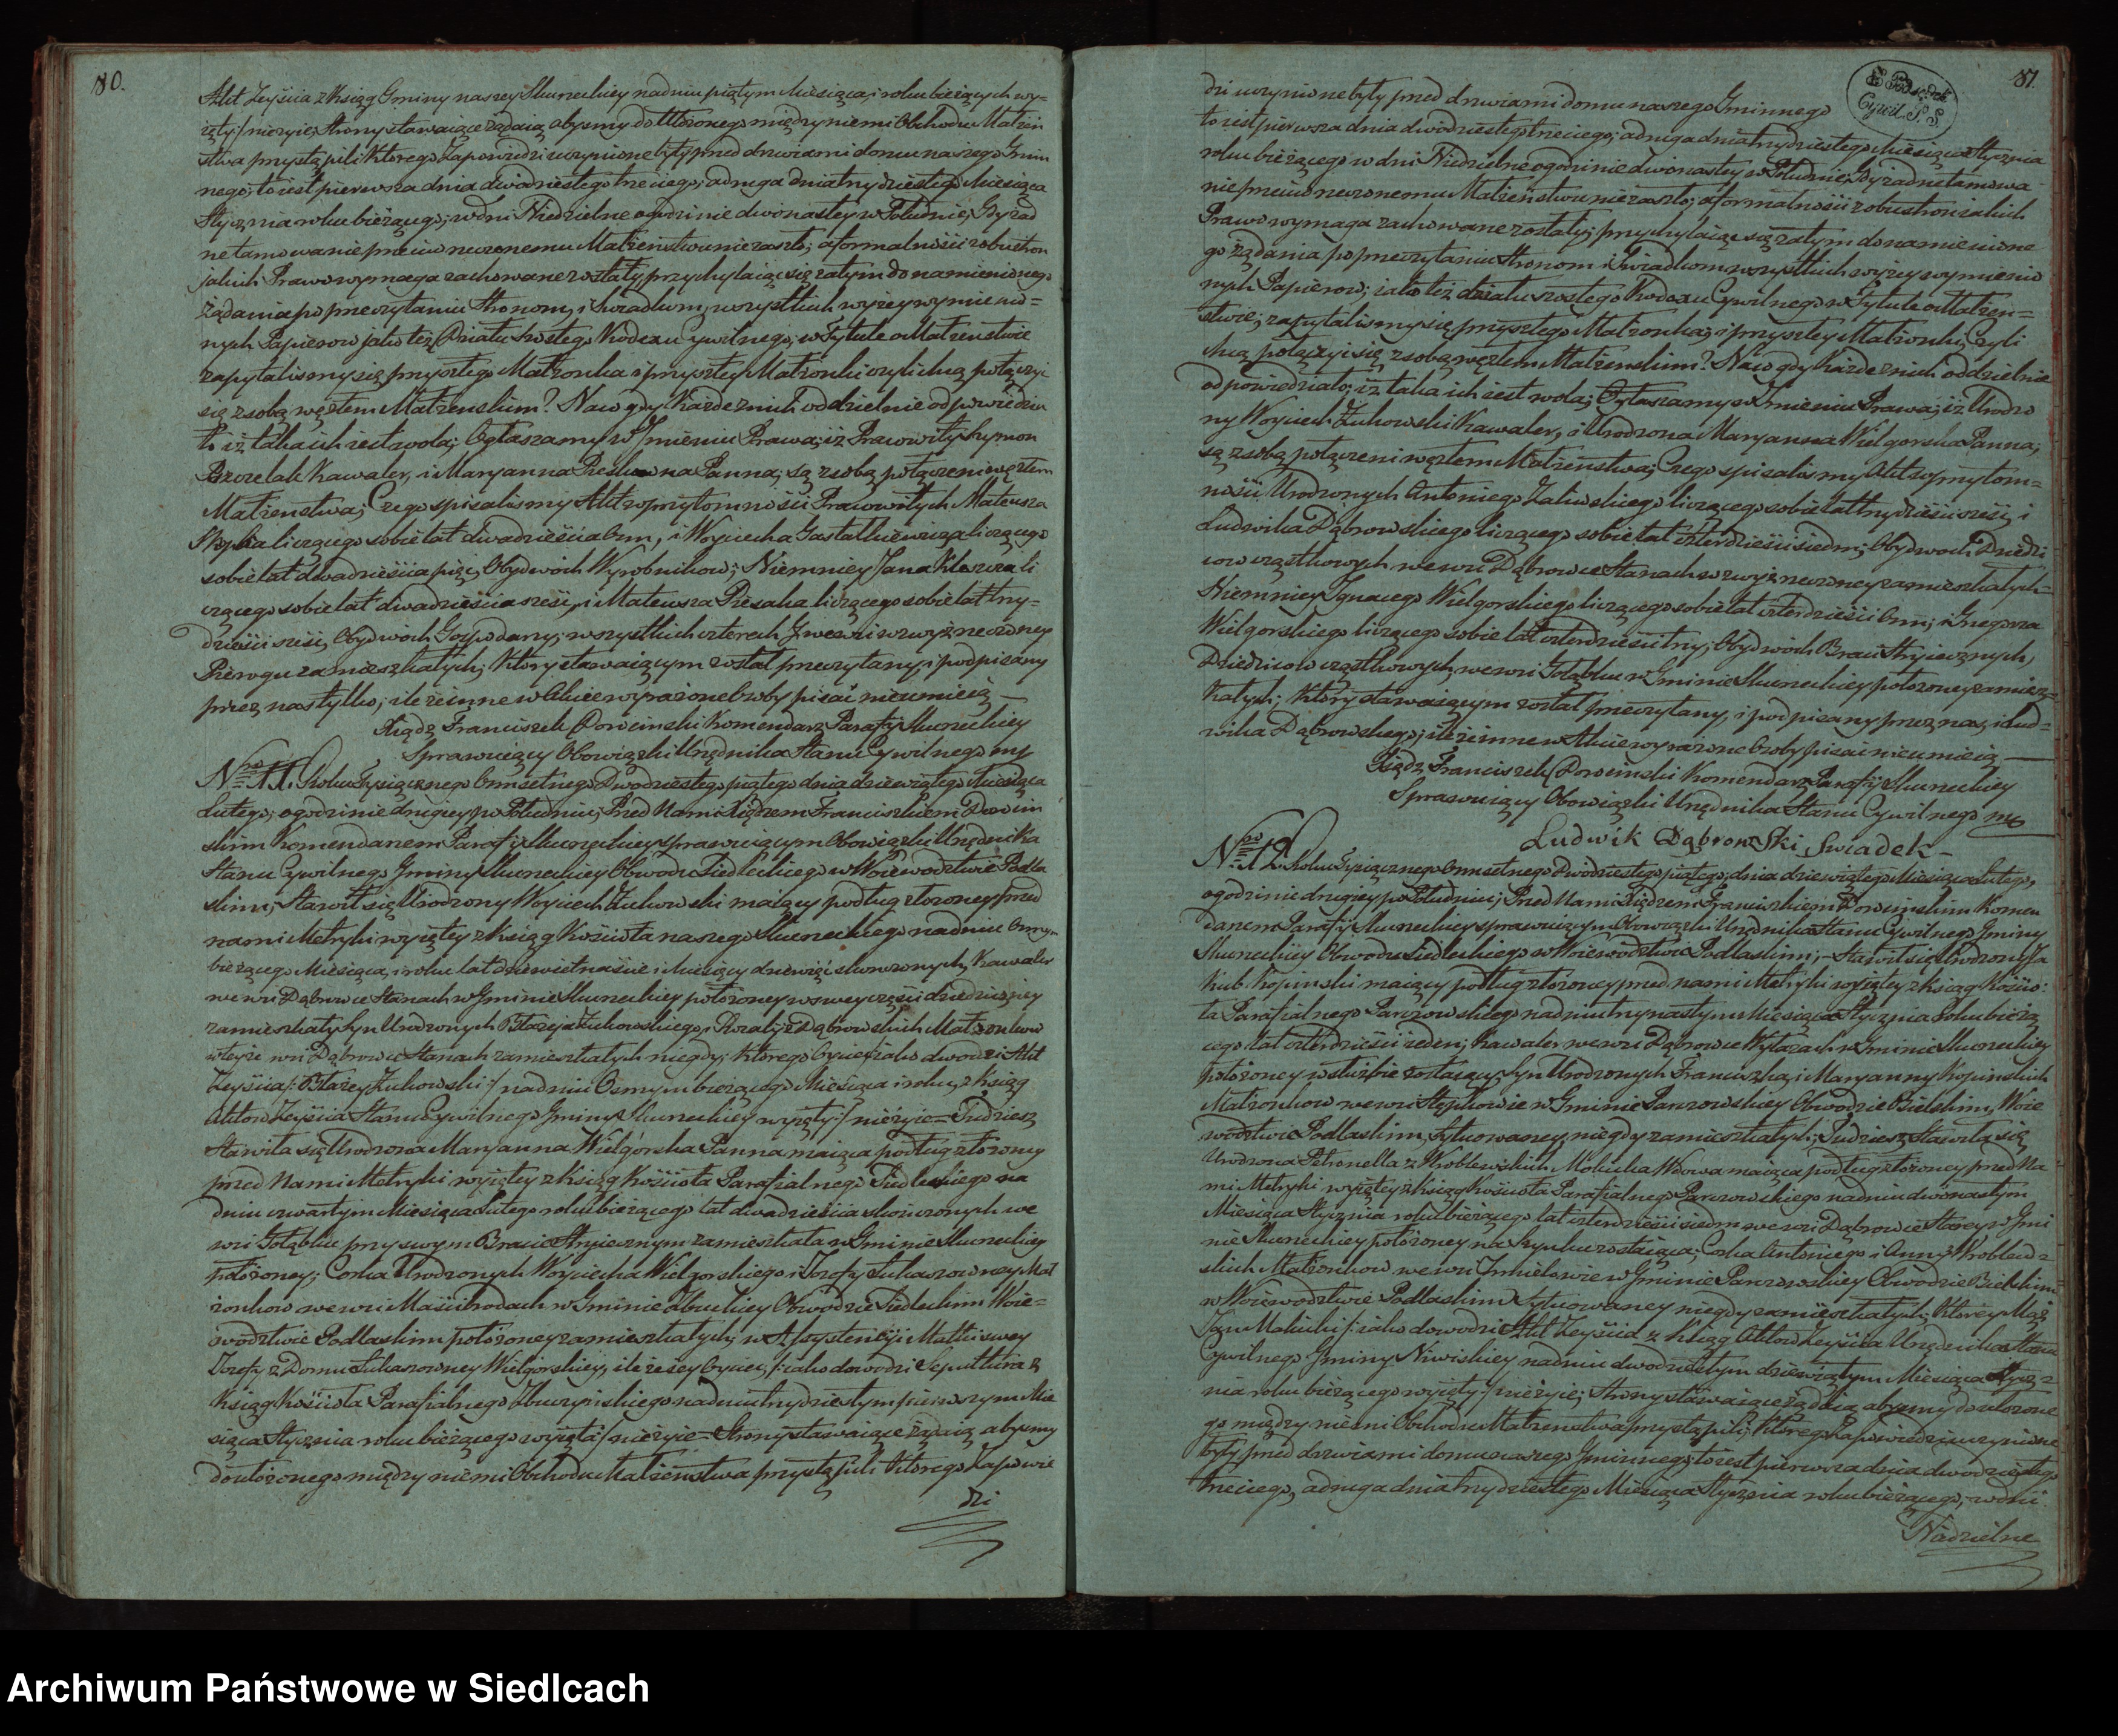 80.
Akt Zeyścia z Ksiąg Gminy naszey Skurzeckiey na dniu piątym Miesiąca, i roku bieżących wy-
ięty:/ nieżyie; Strony stawaiące żądaią abyśmy do Ułożonego między niemi Obchodu Małżeń
stwa przystąpili którego Zapowiedzi uczynione były przed drzwiami domu naszego Gmin
nego; to iest pierwsza dnia dwudziestego trzeciego; a druga dnia trzydziestego Miesiąca
Stycznia roku bieżącego; w dni Niedzielne o godzinie dwónastey w Południe; Gdy żad
ne tamowanie przeciw rzeczonemu Małżeństwu nie zaszło; a formalności z obustron
jakich Prawo wymaga zachowane zostały, przychylaiąc się zatym do namienionego
żądania po przeczytaniu Stronom, i Swiadkom, wszystkich wyżey wymienio=
nych Papierow jako też Działu Szostego Kodexu Cywilnego, w Tytule o Małżenstwie
zapytalismy się przyszłego Małżonka i przyszłey Małżonki czyli chcą połączyć
się z sobą węzłem Małżenskim? Naco gdy każde z nich oddzielnie odpowiedzia
ło iż taka ich iest wola; Ogłaszamy w Imieniu Prawa; iż Prawowity Szymon
Brzezelak Kawaler, i Maryanna Pieskowna Panna; są z sobą połączeni węzłem
Małżenstwa; Czego spisalismy Akt w przytomności Prawowitych Mateusza
liczącego sobie lat dwadzieścia ośm, i Woyciecha Gastatkiewicza liczącego
sobie lat dwadzieścia pięć, Obydwóch Wyrobnikow; Niemniey Jana Kleszcza li
czącego sobie lat dwadzieścia sześć, i Mateusza Piesaka liczącego sobie lat trzy=
dzieści sześć, Obydwóch Gospodarzy, wszystkich czterech We wsi wzwyż rzeczoney
Pierogu zamieszkałych; Który stawaiącym został przeczytany, i podpisany
przez nas tylko; ile że inne w Akcie wyrażone Osoby pisać nieumieią —
Xiądz Franciszek Dowcinski Komendarz Parafy Skurzeckiey
Sprawuiący Obowiązki Urzędnika Stanu Cywilnego mp
Nro 11. Roku Tysiącznego Ośmsetnego Dwódziestego piątego dnia dziewiątego Miesiąca
Lutego; o godzinie drugiey po Południu; Przed Nami Xiędzem Franciszkiem Dowcin
skim Komendarzem Parafii Skurzeckiey sprawuiącym Obowiązki Urzędnika
Stanu Cywilnego Gminy Skurzeckiey Obwodu Siedleckiego w Woiewodztwie Podla
skim; Stawił się Urodzony Woyciech Żukowski maiący podług złożoney przed
nami Metryki wyiętey z ksiąg Kościoła naszego Skurzeckiego na dniu Osmym
bieżącego Miesiąca, i roku lat dziewietnaście i Miesięcy dziewięć skonczonych, Kawaler
we wsi Dąbrowce Stanach w Gminie Skurzeckiey położoney w swey części dziedziczney
zamieszkały Syn Urodzonych Błażeja Żukowskiego i Rozalij z Dąbrowskich Małżonkow
w teyże wsi Dąbrowce Stanach zamieszkałych niegdy; którego Oyciec /: jako dowodzi Akt
Zeyścia /: Błażey Żukowski :/ na dniu Osmym bieżącego Miesiąca i roku, z Ksiąg
Aktow Zeyścia Stanu Cywilnego Gminy Skurzeckiey wyięty :/ nieżyie = Tudziesz
Stawiła się Urodzona Maryanna Wielgórska Panna maiąca podług złożoney
przed Nami Metryki wyiętey z Ksiąg Kościoła Parafialnego Siedleckiego na
dniu czwartym Miesiąca Lutego roku bieżącego lat dwadzieścia skończonych we
wsi Gołąbku przy swym Bracie Stryiecznym zamieszkała w Gminie Skurzeckiey
położoney; Corka Urodzonych Woyciecha Wielgorskiego i Jozefy Łukaszowney Mał
żonkow we wsi Maścibrodach w Gminie Zbuckiey Obwodzie Siedleckim Woie=
wodztwie Podlaskim położoney zamieszkałych; w Assystencyi Matki swey
Jozefy z Domu Łukaszowney Wielgórskiey, ile że iey Oyciec, /: jako dowodzi Sepultura z
Ksiąg Kościoła Parafialnego Zbuczynskiego na dniu trzydziestym pierwszym Mie
siąca Stycznia roku bieżącego wyięta:/ nieżyie = Strony stawaiące żądaią abysmy
do ułożonego między niemi Obchodu Małżeństwa przystąpili którego Zapowie
dzi
81.
Cywil. S. S.
dzi uczynione były przed drzwiami domu naszego Gminnego
to iest pierwsza dnia dwodziestego trzeciego; a druga dnia trzydziestego Miesiąca Stycznia
roku bieżącego w dni Niedzielne o godzinie dwónastey w Południe; Gdy żadne tamowa
nie przeciw rzeczonemu Małżeństwu nie zaszło; a formalności z obustron iakich
Prawo wymaga zachowane zostały; przychylaiąc się zatym do namienione
go żądania po przeczytaniu Stronom i Swiadkom wszystkich wyżey wymienio
nych Papierow; iako też działu szostego Kodexu Cywilnego w Tytule o Małżen=
stwie; zapytalismy się przyszłego Małżonka, i przyszłey Małżonki, Czyli
chcą połączyć się z sobą węzłem Małżenskim? Naco gdy każde z nich oddzielnie
odpowiedziało; iż taka ich iest wola; Ogłaszamy w Imieniu Prawa; iż Urodzo
ny Woyciech Żukowski Kawaler, i Urodzona Maryanna Wielgorska Panna;
są z sobą połączeni węzłem Małżenstwa; Czego spisalismy Akt w przytom=
ności Urodzonych Antoniego Zaliwskiego liczącego sobie lat trzydzieści sześć, i
Ludwika Dąbrowskiego liczącego sobie lat czterdzieści siedm; Obydwoch Dziedzi
cow cząstkowych we wsi Dąbrowce Stanach wzwyż rzeczoney zamieszkałych=
Niemniey Ignacego Wielgorskiego liczącego sobie lat czterdzieści Ośm; i Grzegorza
Wielgorskiego liczącego sobie lat czterdzieści trzy; Obydwóch Braci Stryiecznych,
Dziedzicow cząstkowych, we wsi Gołąbku w Gminie Skurzeckiey położoney zamiesz=
kałych; Który stawaiącym został przeczytany, i podpisany przez nas, i Lud=
wika Dąbrowskiego; ile że inne w Akcie wyrażone Osoby pisać nieumieią —
Xiądz Franciszek Dowcinski Komendarz Parafij Skurzeckiey
Sprawuiący Obowiązki Urzędnika Stanu Cywilnego mp
Ludwik Dąbrowski Swiadek -
Nro 12. Roku Tysiącznego Ośmsetnego Dwódziestego piątego; dnia dziewiątego Miesiąca Lutego,
o godzinie drugiey po Południu; Przed Nami Xiędzem Franciszkiem Dowcinskim Komen
darzem Parafij Skurzeckiey sprawuiącym Obowiązki Urzędnika Stanu Cywilnego Gminy
Skurzeckiey Obwodu Siedleckiego w Woiewodztwie Podlaskim; - Stawił się Urodzony Ja
kub Kopinski maiący podług złożoney przed nami Metryki wyiętey z ksiąg Kościo:
ła Parafialnego Parczowskiego na dniu trzynastym Miesiąca Stycznia roku bieżą
cego lat czterdzieści ieden; Kawaler we wsi Dąbrowce Wyłazach w Gminie Skurzeckiey
położoney w służbie zostaiący, Syn Urodzonych Franciszka, i Maryanny Kopinskich
Małżonkow we wsi Stępkowie w Gminie Parczowskiey Obwodzie Bielskim, Woie
wodztwie Podlaskim, Sytuowaney, niegdy zamieszkałych; Tudziesz Stawiła się
Urodzona Petronella z Wroblewskich Mokicka Wdowa maiąca podług złożoney przed Na
mi Metryki wyiętey z ksiąg Kościoła Parafialnego Parczowskiego na dniu dwónastym
Miesiąca Stycznia roku bieżącego lat czterdzieści siedm we wsi Dąbrowce Starey w Gmi
nie Skurzeckiey położoney na Szynku zostaiąca; Corka Antoniego i Anny Wroblew=
skich Małżonkow we wsi Chmielowie w Gminie Parczowskiey Obwodzie Bielskim
w Woiewodztwie Podlaskim Sytuowaney niegdy zamieszkałych; Którey Mąż
Jan Mokicki /: iako dowodzi Akt Zeyścia z Ksiąg Aktow Zeyścia Urzędnika Stanu
Cywilnego Gminy Niwiskiey na dniu dwodziestym dziewiątym Miesiąca Stycz=
nia roku bieżącego wyięty :/ nieżyie; Strony stawaiące żądaią, abysmy do ułożone
go między niemi Obchodu Małżenstwa przystąpili; którego Zapowiedzi uczynione
były przed drzwiami domu naszego Gminnego; to iest pierwsza dnia dwodziestego
trzeciego, a druga dnia trzydziestego Miesiąca Stycznia roku bieżącego, w dni
Niedzielne
Archiwum Państwowe w Siedlcach